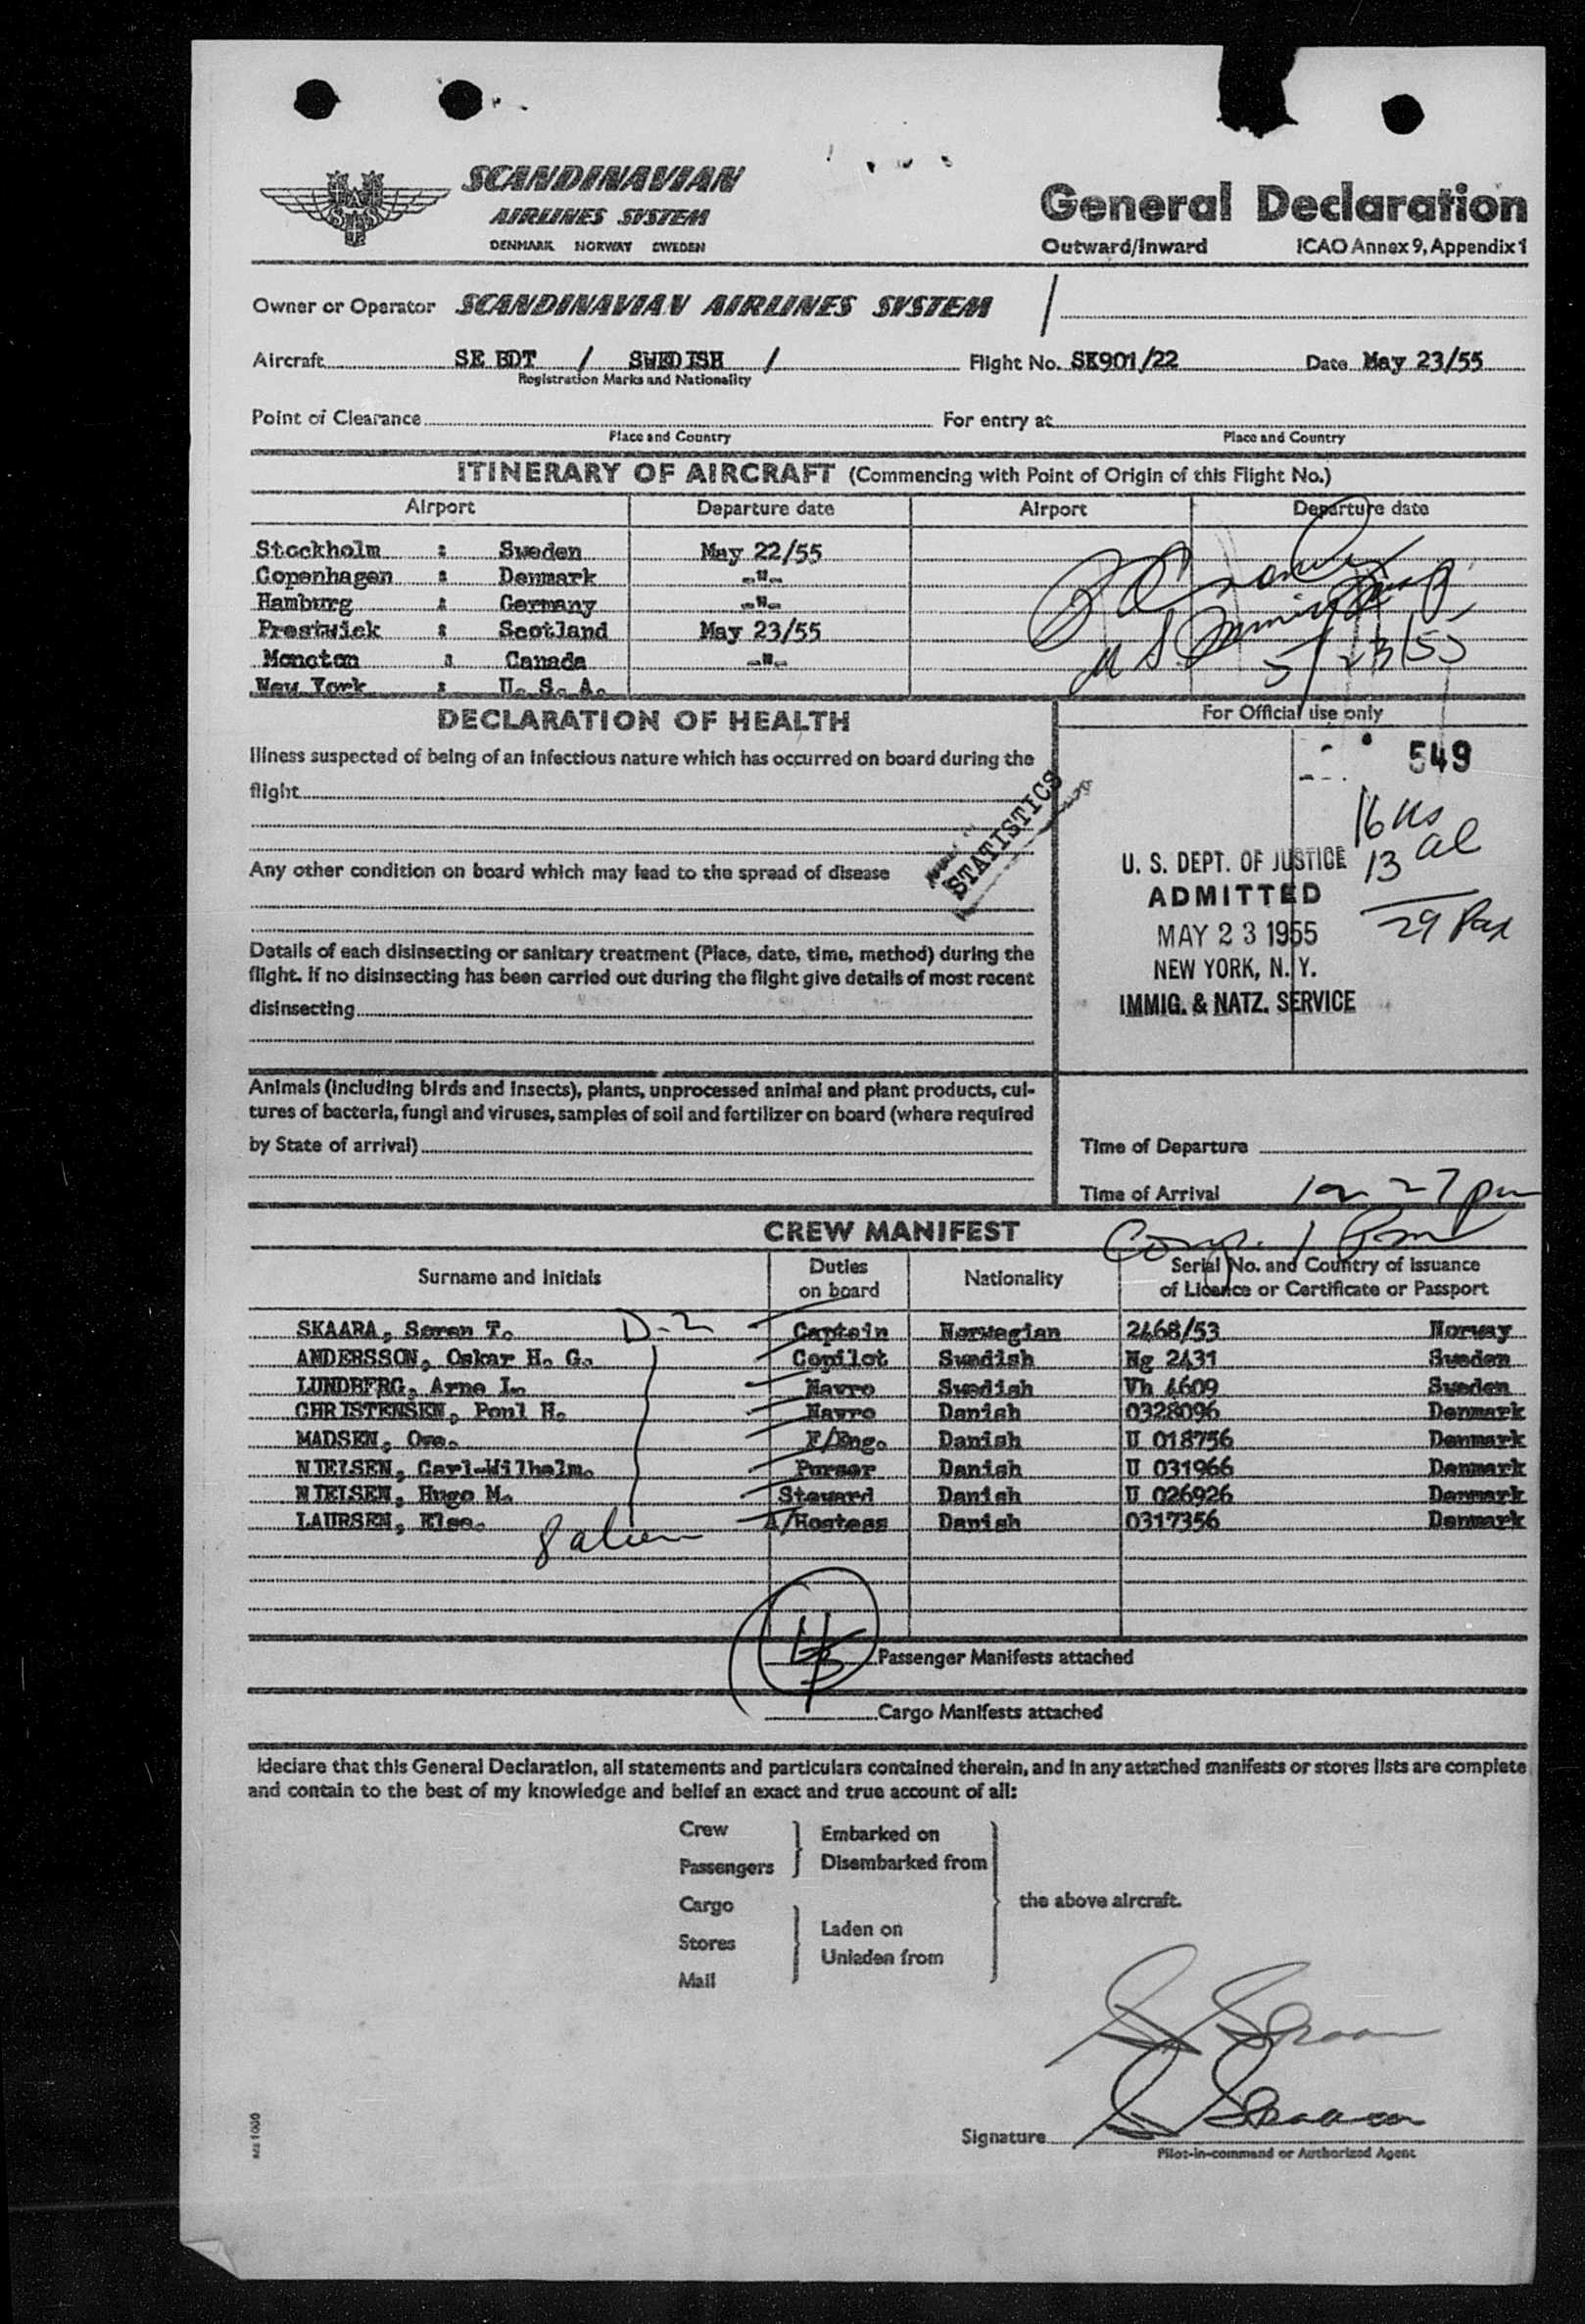 SCANDINAVIAN
AIRLINES SYSTEM
DENMARK NORWAY SWEDEN
General Declaration
Outward/Inward ICAO Annex 9, Appendix 1
Owner or Operator SCANDINAVIAN AIRLINES SYSTEM /
Aircraft SE BDT / SWEDISH / Flight No. SK901/22 Date May 23/55
Registration Marks and Nationality
Point of Clearance For entry at
Place and Country Place and Country
ITINERARY OF AIRCRAFT (Commencing with Point of Origin of this Flight No.)
Airport Departure date Airport Departure date
Stockholm : Sweden May 22/55
Copenhagen : Denmark -"-
Hamburg : Germany -"-
Prestwick : Scotland May 23/55
Moncton : Canada -"-
New York : U. S. A.
5/23/55
DECLARATION OF HEALTH
For Official use only
Illness suspected of being of an infectious nature which has occurred on board during the
flight
549
STATISTICS
16 us
13 al
29 Pax
U. S. DEPT. OF JUSTICE
ADMITTED
MAY 23 1955
NEW YORK, N. Y.
IMMIG. & NATZ. SERVICE
Any other condition on board which may lead to the spread of disease
Details of each disinsecting or sanitary treatment (Place, date, time, method) during the
flight. If no disinsecting has been carried out during the flight give details of most recent
disinsecting
Animals (including birds and insects), plants, unprocessed animal and plant products, cul-
tures of bacteria, fungi and viruses, samples of soil and fertilizer on board (where required
by State of arrival)
Time of Departure
Time of Arrival 12 27 pm
Comp. 1 Pm
CREW MANIFEST
Surname and Initials Duties on board Nationality Serial No. and Country of issuance of Licence or Certificate or Passport
SKAARA, Søren T. D-2 Captain Norwegian 2468/53 Norway
ANDERSSON, Oskar H. G. Copilot Swedish Ng 2431 Sweden
LUNDBERG, Arne I. Navro Swedish Vh 4609 Sweden
CHRISTENSEN, Poul H. Navro Danish 0328096 Denmark
MADSEN, Ove. F/Eng. Danish U 018756 Denmark
NIELSEN, Carl-Wilhelm. Purser Danish U 031966 Denmark
NIELSEN, Hugo M. Steward Danish U 026926 Denmark
LAURSEN, Else. A/Hostess Danish 0317356 Denmark
8 alien
Passenger Manifests attached
Cargo Manifests attached
I declare that this General Declaration, all statements and particulars contained therein, and in any attached manifests or stores lists are complete
and contain to the best of my knowledge and belief an exact and true account of all:
Crew
Passengers
Embarked on
Disembarked from
Cargo
Stores
Mail
Laden on
Unladen from
the above aircraft.
S Skaara
S Skaara
Signature
Pilot-in-command or Authorized Agent